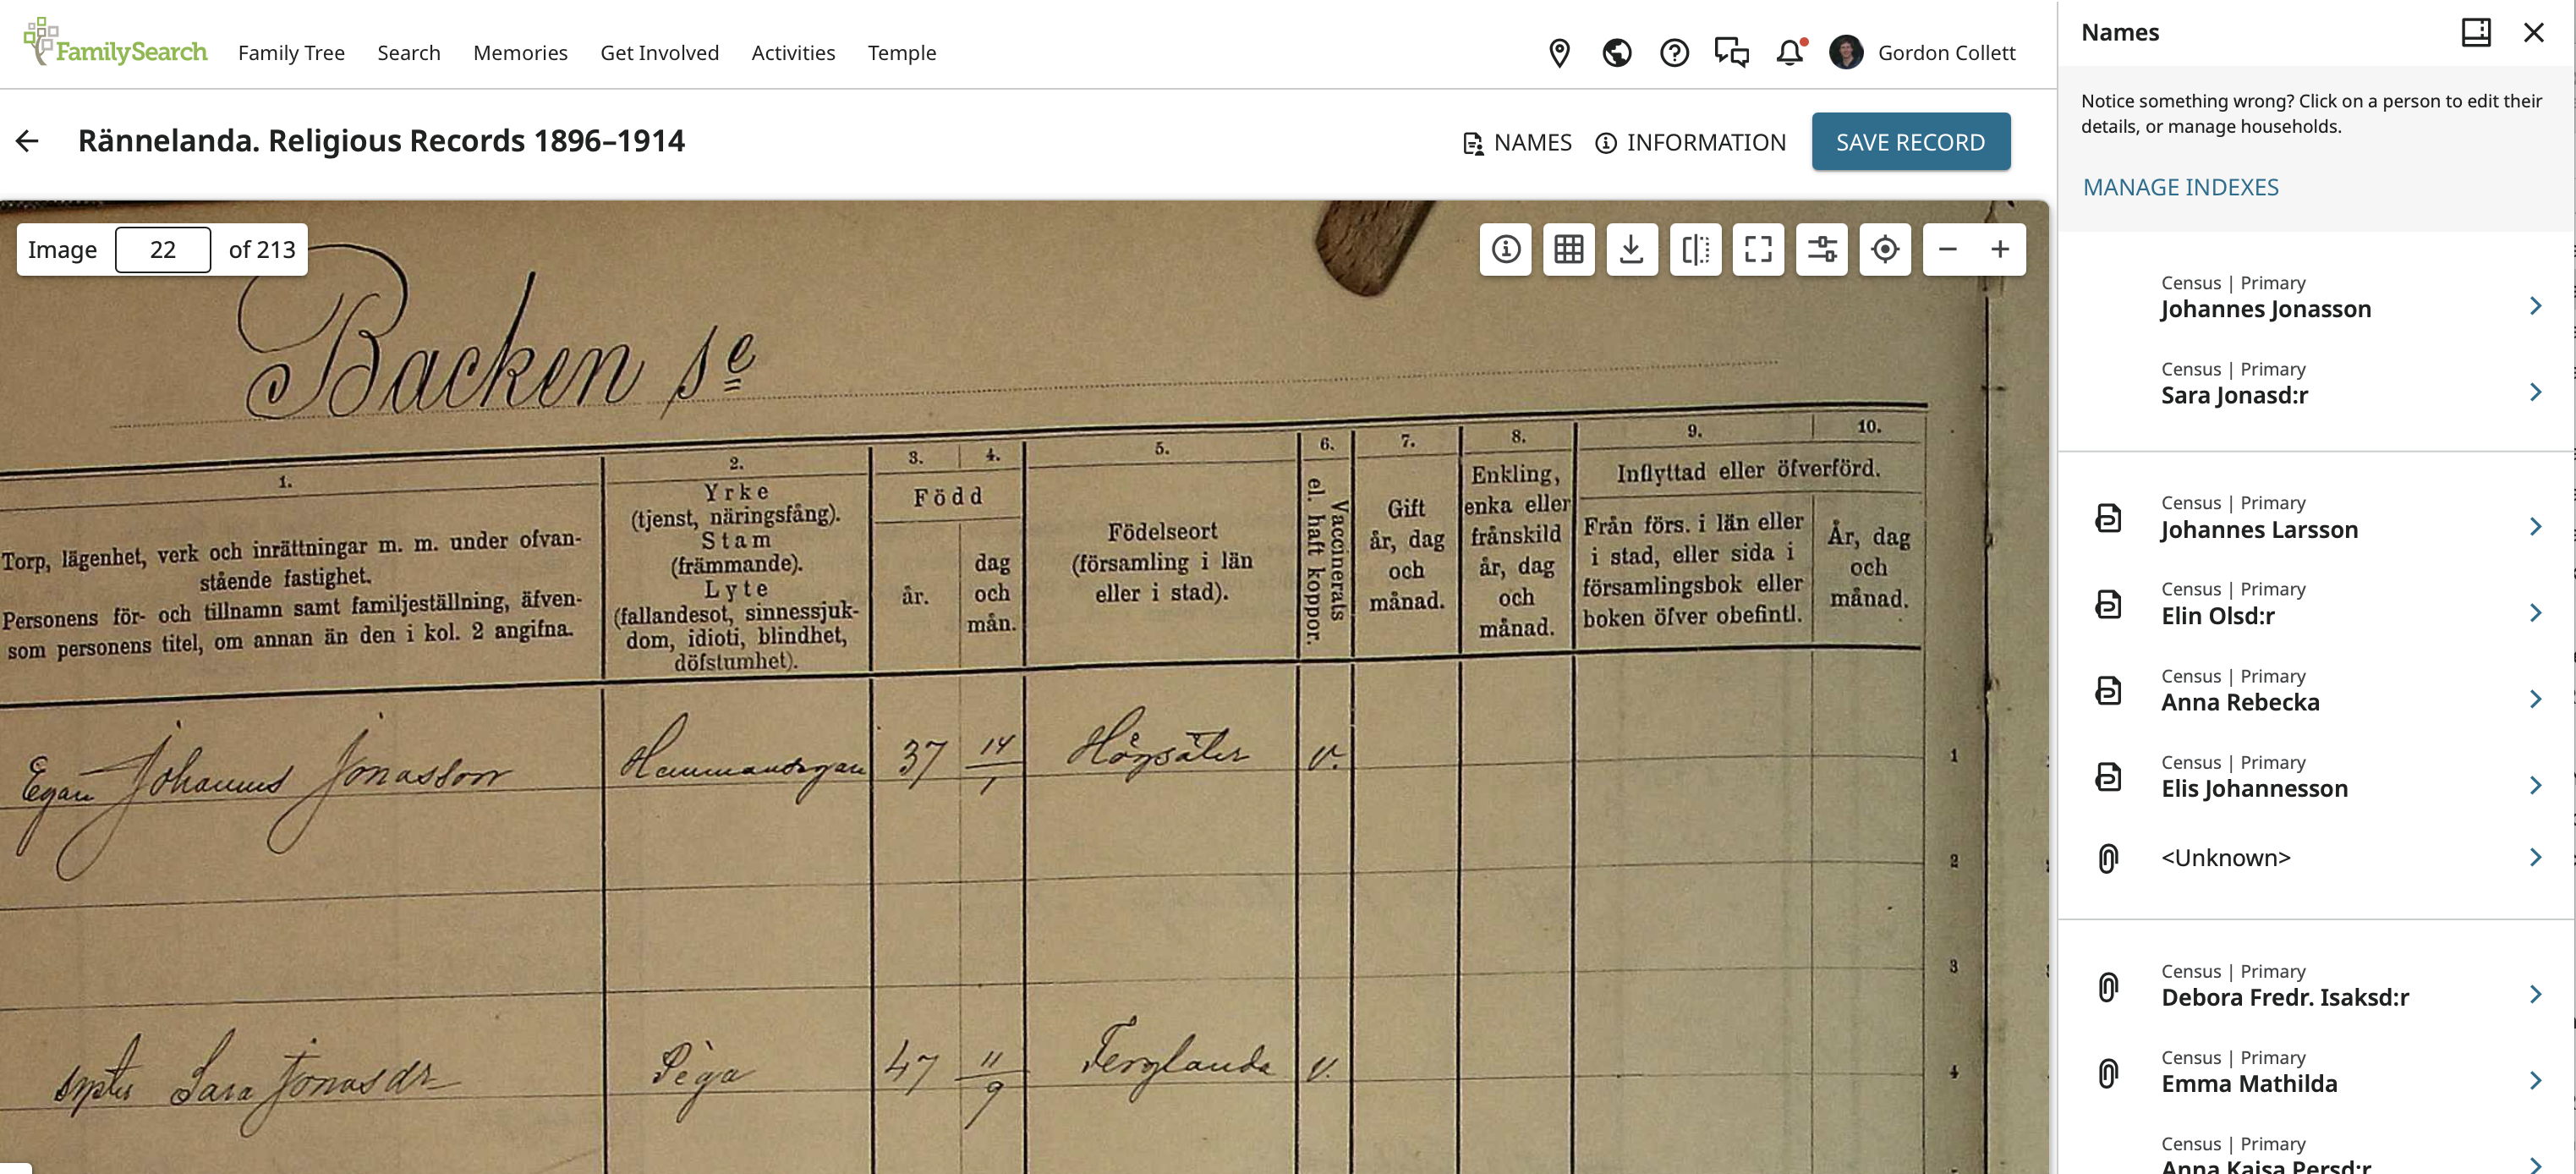 FamilySearch
Family Tree
Search
Memories
Get Involved
Activities
Temple
Gordon Collett
Rännelanda. Religious Records 1896–1914
NAMES
INFORMATION
SAVE RECORD
Image 22 of 213
Backen se
1.
Torp, lägenhet, verk och inrättningar m. m. under ofvan-
stående fastighet.
Personens för- och tillnamn samt familjeställning, äfven-
som personens titel, om annan än den i kol. 2 angifna.
2.
Yrke
(tjenst, näringsfång).
Stam
(främmande).
Lyte
(fallandesot, sinnessjuk-
dom, idioti, blindhet,
döfstumhet).
3.
4.
Född
år.
dag
och
mån.
5.
Födelseort
(församling i län
eller i stad).
6.
Vaccinerats
el. haft koppor.
7.
Gift
år, dag
och
månad.
8.
Enkling,
enka eller
frånskild
år, dag
och
månad.
9.
10.
Inflyttad eller öfverförd.
Från förs. i län eller
i stad, eller sida i
församlingsbok eller
boken öfver obefintl.
År, dag
och
månad.
Egan Johannes Jonasson Hemmansegare 37 14/1 Högsäter v. 1
2
3
Sara Jonasdr Piga 47 11/9 Ferglanda v. 4
Names
Notice something wrong? Click on a person to edit their
details, or manage households.
MANAGE INDEXES
Census | Primary
Johannes Jonasson
Census | Primary
Sara Jonasd:r
Census | Primary
Johannes Larsson
Census | Primary
Elin Olsd:r
Census | Primary
Anna Rebecka
Census | Primary
Elis Johannesson
<Unknown>
Census | Primary
Debora Fredr. Isaksd:r
Census | Primary
Emma Mathilda
Census | Primary
Anna Kaisa Persd:r